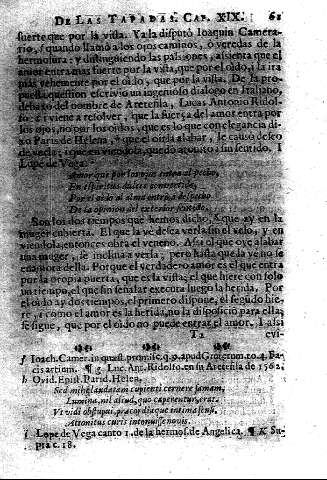 DE LAS TAPADAS. CAP. XIX. 61
fuerte que por la vista. Ya la disputò Ioaquin Camera-
rio, f quando llamò a los ojos caminos, o veredas de la
hermosura: y distinguiendo las passiones, assienta que el
amor entra mas fuerte por la vista, que por el oido; y la ira
mas vehemente por el oido, que por la vista. De
question escrivio un ingenioso dialogo en Italiano,
debaxo del nombre de Aretefila, Lucas Antonio Ridol-
fo: g i viene a resolver, que la fuerça del amor entra por
los ojos, no por los oidos, que es lo que con elegancia di-
xo Paris de Helena, h que el oirla alabar, le causò deseo
de verla; i que en viendola, quedò atonito, i sin sentido. I
Lope de Vega:
Amor que por los ojos entra al pecho,
En espiritus dulces convertido,
Por el oido al alma entra a despecho
De la opinion del exterior sentido.
Son los dos tiempos que hemos dicho, & que ay en la
muger cubierta. El que la vè desea verla sin el velo, y en
viendola, entonces obra el veneno. Assi el que oye alabar
una muger, se inclina a verla, pero hasta que la vè no se
enamora della. Porque el verdadero amor es el que entra
por la propia puerta, que es la vista; el que hiere con solo
un tiempo, el que sin señalar executa luego la herida. Por
el oido ay dos tiempos, el primero dispone, el segũdo hie-
re, i como el amor es la herida, no la disposicion para ella;
se sigue, que por el oido no puede entrar el amor. I assi
evi-
f Ioach. Camer. in quæst. promisc. q. 9. apud Gruterum. to. 4. Fa-
cis artium. ¶ g Luc. Ant. Ridolfo. en su Aretefila de 1562.
h Ovid. Epist. Parid. Helen.
Sed mihi laudatam cupienti cernere formam,
Lumina, nil aliud, quo caperentur, erat.
Vt vidi obstupui, præcordiaque intima sensi,
Attonitus curis intonuisse novis.
i Lope de Vega canto 1. de la hermos. de Angelica. ¶ K Su-
pra c. 18.